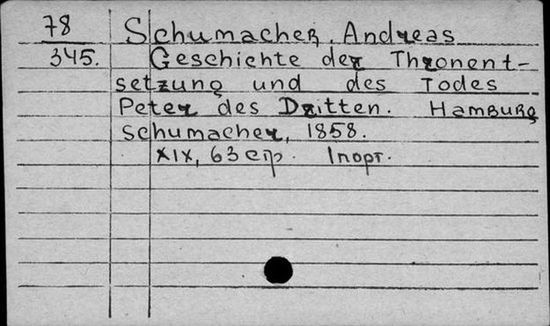 78 Schumacher, Andreas
345. Geschichte der Thronent-
setzung und des Todes
Peter des Dritten. Hamburg
Schumacher, 1858.
XIX, 63 стр. 1 порт.